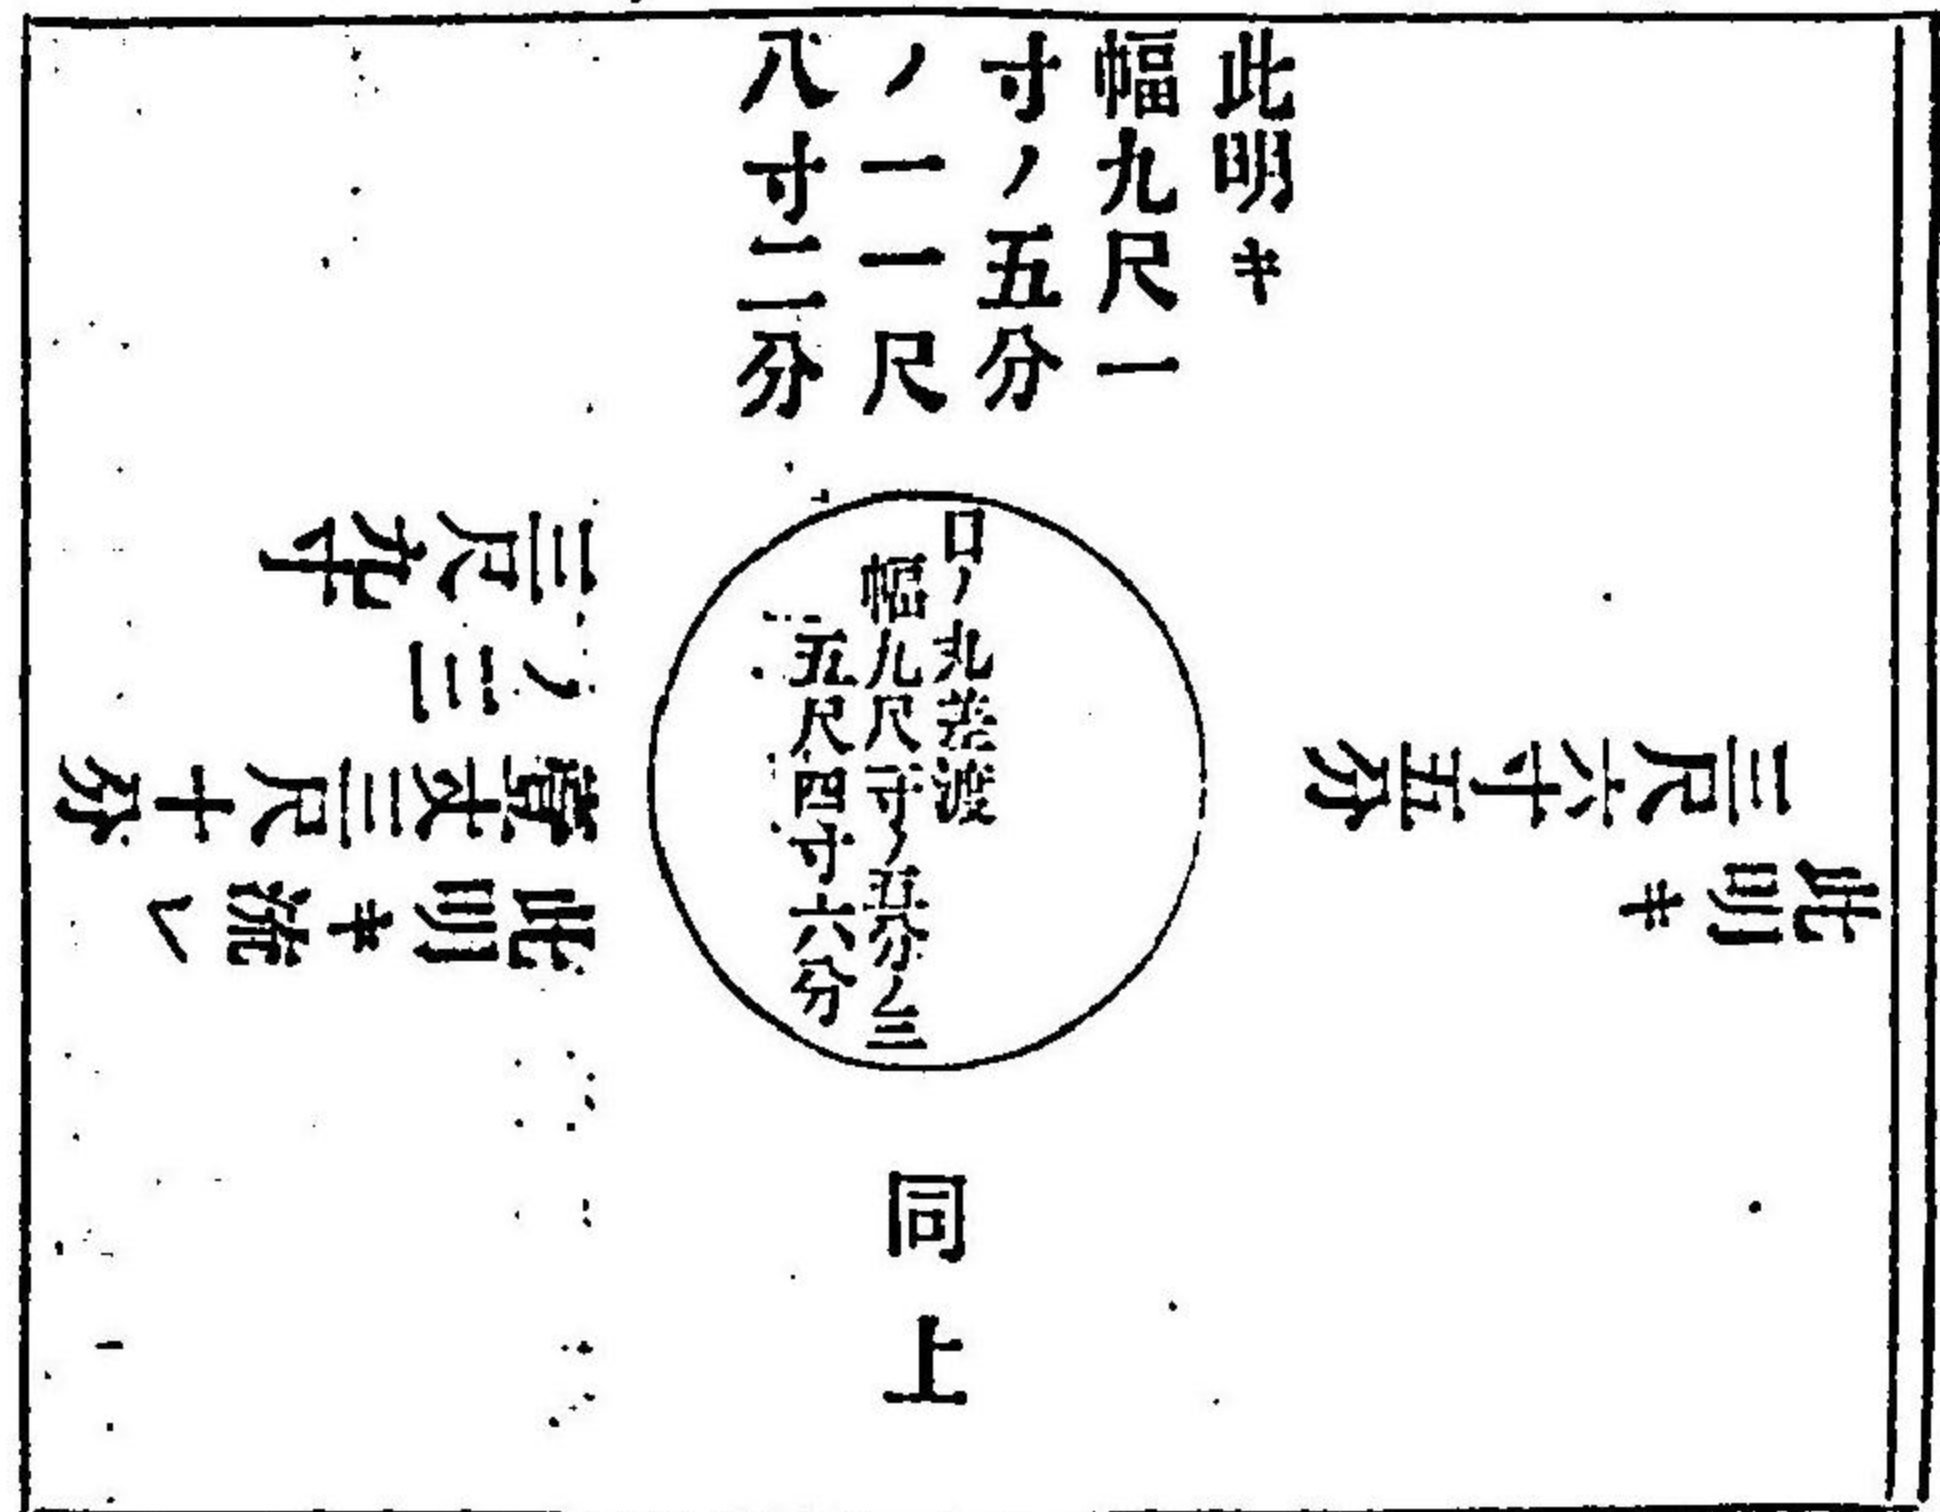 此明キ
幅九尺一
寸ノ五分
ノ一一尺
八寸二分
此明キ
三尺六寸五分
口ノ丸差渡
幅九尺一寸ノ五分ノ三
五尺四寸六分
此明キ流レ
竪丈三尺十分
ノ三
三尺九寸
同上